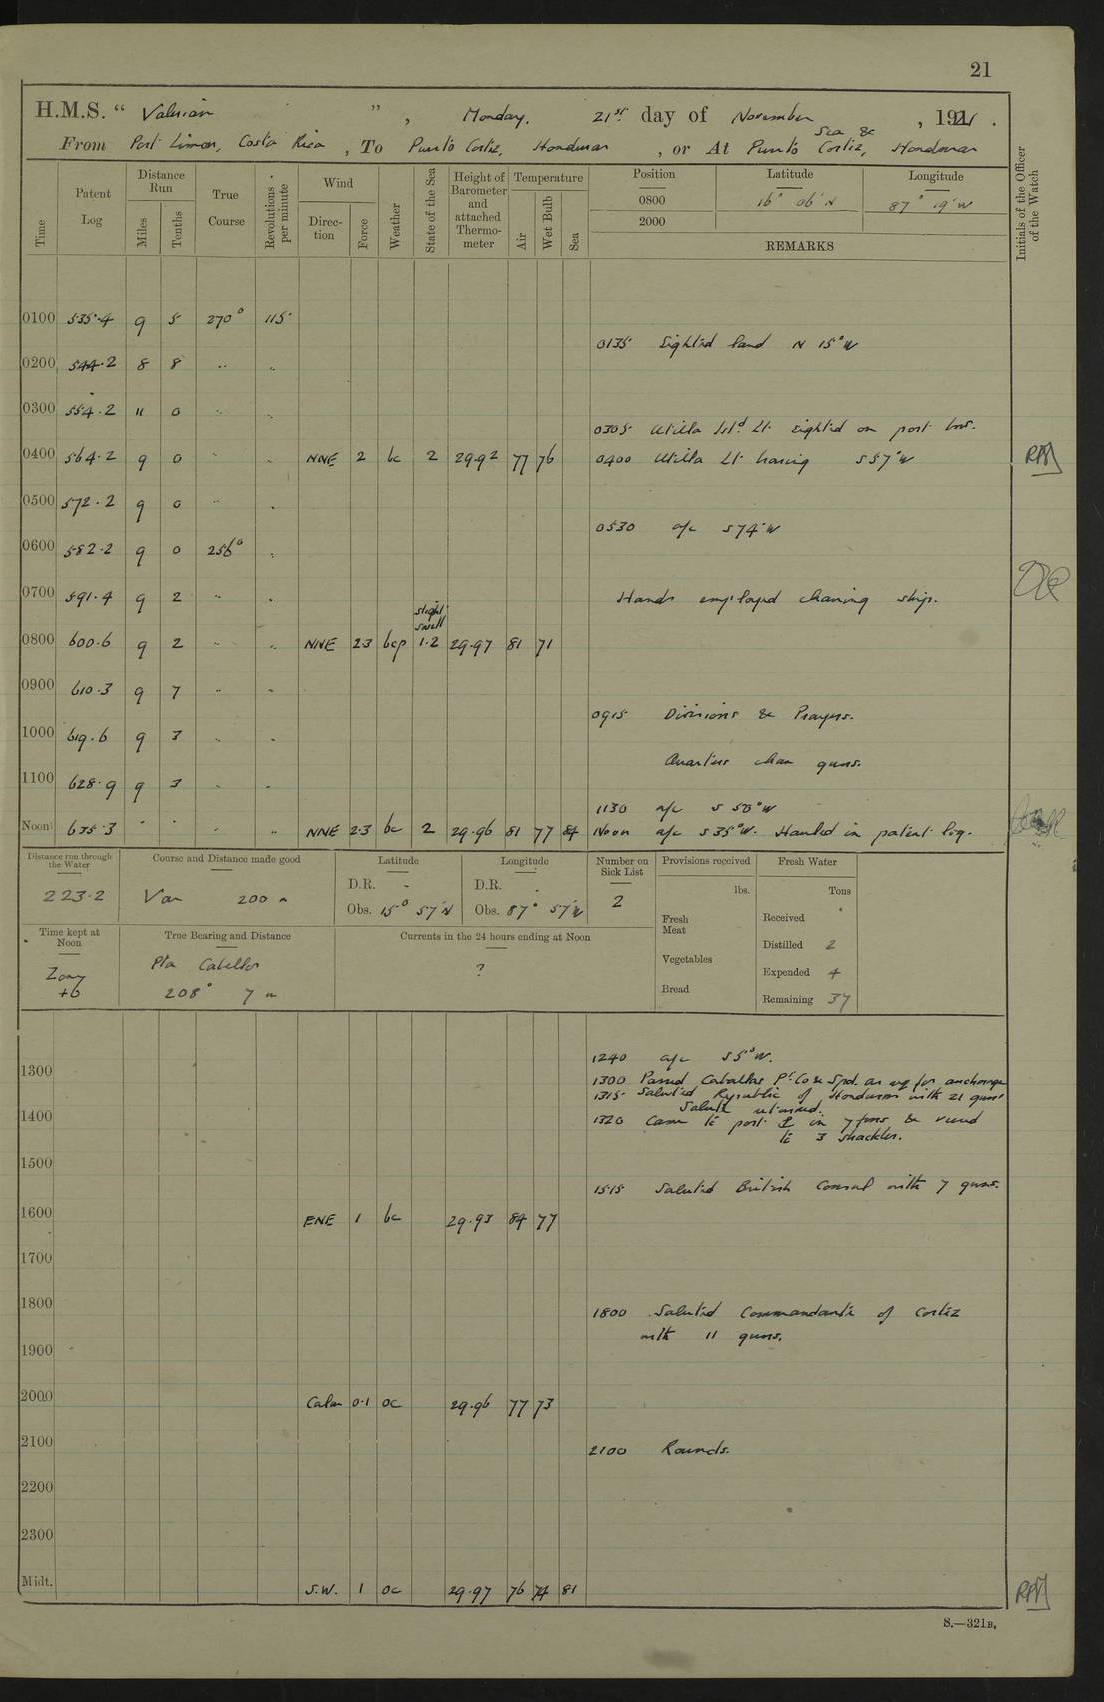 21
H.M.S. “ Valerian ” , Monday. 21st. day of November , 1921 .
From Port Limon, Costa Rica , To Puerto Cortez, Honduras , or At Sea & Puerto Cortez, Honduras
Time
Patent Log
Distance Run
Miles
Tenths
True Course
Revolutions per minute
Wind
Direction
Force
Weather
State of the Sea
Height of Barometer and attached Thermometer
Temperature
Air
Wet Bulb
Sea
Position
Latitude
Longitude
0800 16° 06' N 87° 19' W
2000
REMARKS
Initials of the Officer of the Watch
0100 535.4 9 5 270° 115
0135 Sighted land N 15° W
0200 544.2 8 8 .. ..
0300 554.2 11 0 .. ..
0305 Utilla Isld. Lt. sighted on port bow.
0400 564.2 9 0 .. .. NNE 2 bc 2 29.92 77 76 0400 Utilla Lt bearing S 57° W
0500 572.2 9 0 .. ..
0530 a/c S 74° W
0600 582.2 9 0 256° ..
0700 591.4 9 2 .. .. Hands employed cleaning ship.
slight swell
0800 600.6 9 2 .. .. NNE 2.3 bcp 1.2 29.97 81 71
0900 610.3 9 7 .. ..
0915 Divisions & Prayers.
1000 619.6 9 3 .. ..
Quarters clean guns.
1100 628.9 9 3 .. ..
1130 a/c S 50° W
Noon 635.3 .. .. .. .. NNE 2.3 bc 2 29.96 81 77 84 Noon a/c S 35° W. Hauled in patent log.
Distance run through the Water
223.2
Course and Distance made good
Var 200 m
Latitude
D.R. -
Obs. 15° 57' N
Longitude
D.R. -
Obs. 87° 57' W
Number on Sick List
2
Provisions received
lbs.
Fresh Meat
Vegetables
Bread
Fresh Water
Tons
Received
Distilled 2
Expended 4
Remaining 37
Time kept at Noon
Zone +6
True Bearing and Distance
Pta Cabellos
208° 7 m
Currents in the 24 hours ending at Noon
?
1240 a/c S 5° W.
1300
1300 Passed Caballos Pt. Co & Spd. as req for anchorage
1315 Saluted Republic of Honduras with 21 guns
Salute returned.
1400
1320 Came to port ⚓ in 7 fms & veered
to 3 shackles.
1500
1515 Saluted British Consul with 7 guns.
1600 ENE 1 bc 29.93 84 77
1700
1800
1800 Saluted Commandante of Cortez
with 11 guns.
1900
2000 Calm 0.1 oc 29.96 77 73
2100
2100 Rounds.
2200
2300
Midt. S.W. 1 oc 29.97 76 74 81
S.—321B.